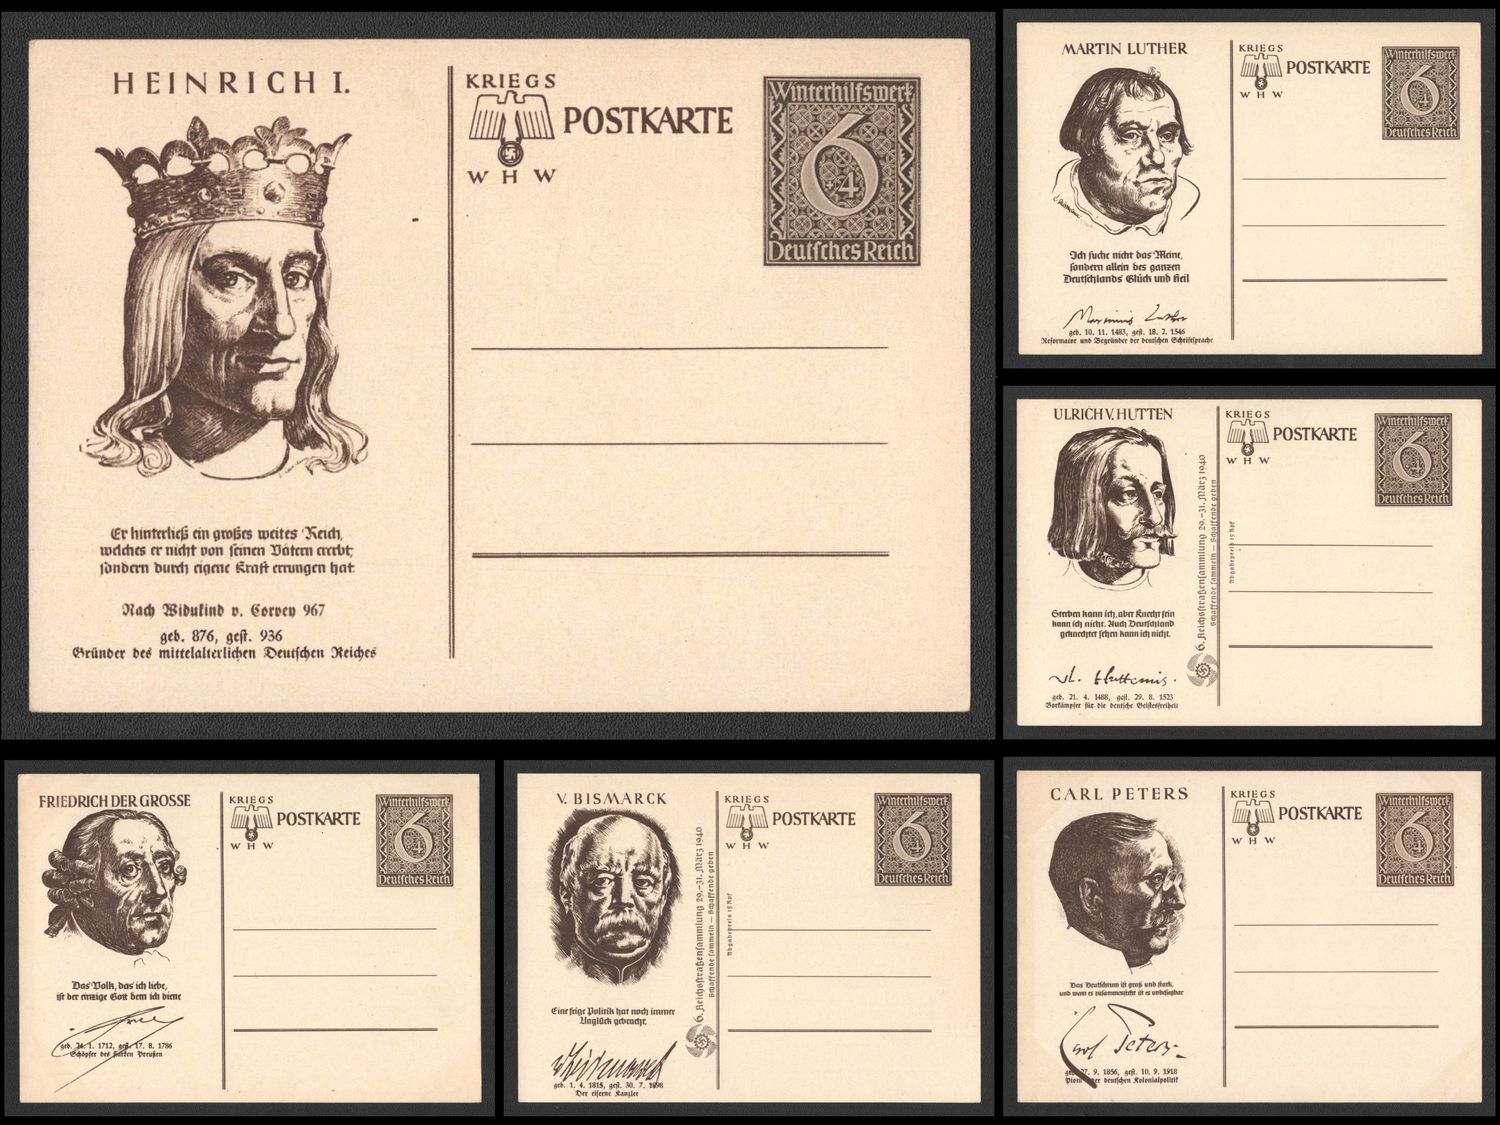 HEINRICH I.
Er hinterließ ein großes weites Reich,
welches er nicht von seinen Vätern ererbt,
sondern durch eigene Kraft errungen hat.
Nach Widukind v. Corvey 967
geb. 876, gest. 936
Gründer des mittelalterlichen Deutschen Reiches
KRIEGS
POSTKARTE
W H W
Winterhilfswerk
6
+4
Deutsches Reich
MARTIN LUTHER
Ich suche nicht das Meine,
sondern allein des ganzen
Deutschlands Glück und Heil
Martinus Luther
geb. 10. 11. 1483, gest. 18. 2. 1546
Reformator und Begründer der deutschen Schriftsprache
KRIEGS
POSTKARTE
W H W
Winterhilfswerk
6
+4
Deutsches Reich
ULRICH V. HUTTEN
Sterben kann ich, aber Knecht sein
kann ich nicht. Auch Deutschland
geknechtet sehen kann ich nicht.
Vl. Huttenus.
geb. 21. 4. 1488, gest. 29. 8. 1523
Vorkämpfer für die deutsche Geistesfreiheit
6. Reichsstraßensammlung 29.–31. März 1940
Schaffende sammeln – Schaffende geben
Abgabepreis 15 Rpf
KRIEGS
POSTKARTE
W H W
Winterhilfswerk
6
+4
Deutsches Reich
FRIEDRICH DER GROSSE
Das Volk, das ich liebe,
ist der einzige Gott dem ich diene
geb. 24. 1. 1712, gest. 17. 8. 1786
Schöpfer des starken Preußen
KRIEGS
POSTKARTE
W H W
Winterhilfswerk
6
+4
Deutsches Reich
V. BISMARCK
Eine feige Politik hat noch immer
Unglück gebracht.
v Bismarck
geb. 1. 4. 1815, gest. 30. 7. 1898
Der eiserne Kanzler
6. Reichsstraßensammlung 29.–31. März 1940
Schaffende sammeln – Schaffende geben
Abgabepreis 15 Rpf
KRIEGS
POSTKARTE
W H W
Winterhilfswerk
6
+4
Deutsches Reich
CARL PETERS
Das Deutschtum ist groß und stark,
und wenn es zusammensteht ist es unbesiegbar
Carl Peters
geb. 27. 9. 1856, gest. 10. 9. 1918
der deutschen Kolonialpolitik
KRIEGS
POSTKARTE
W H W
Winterhilfswerk
6
+4
Deutsches Reich